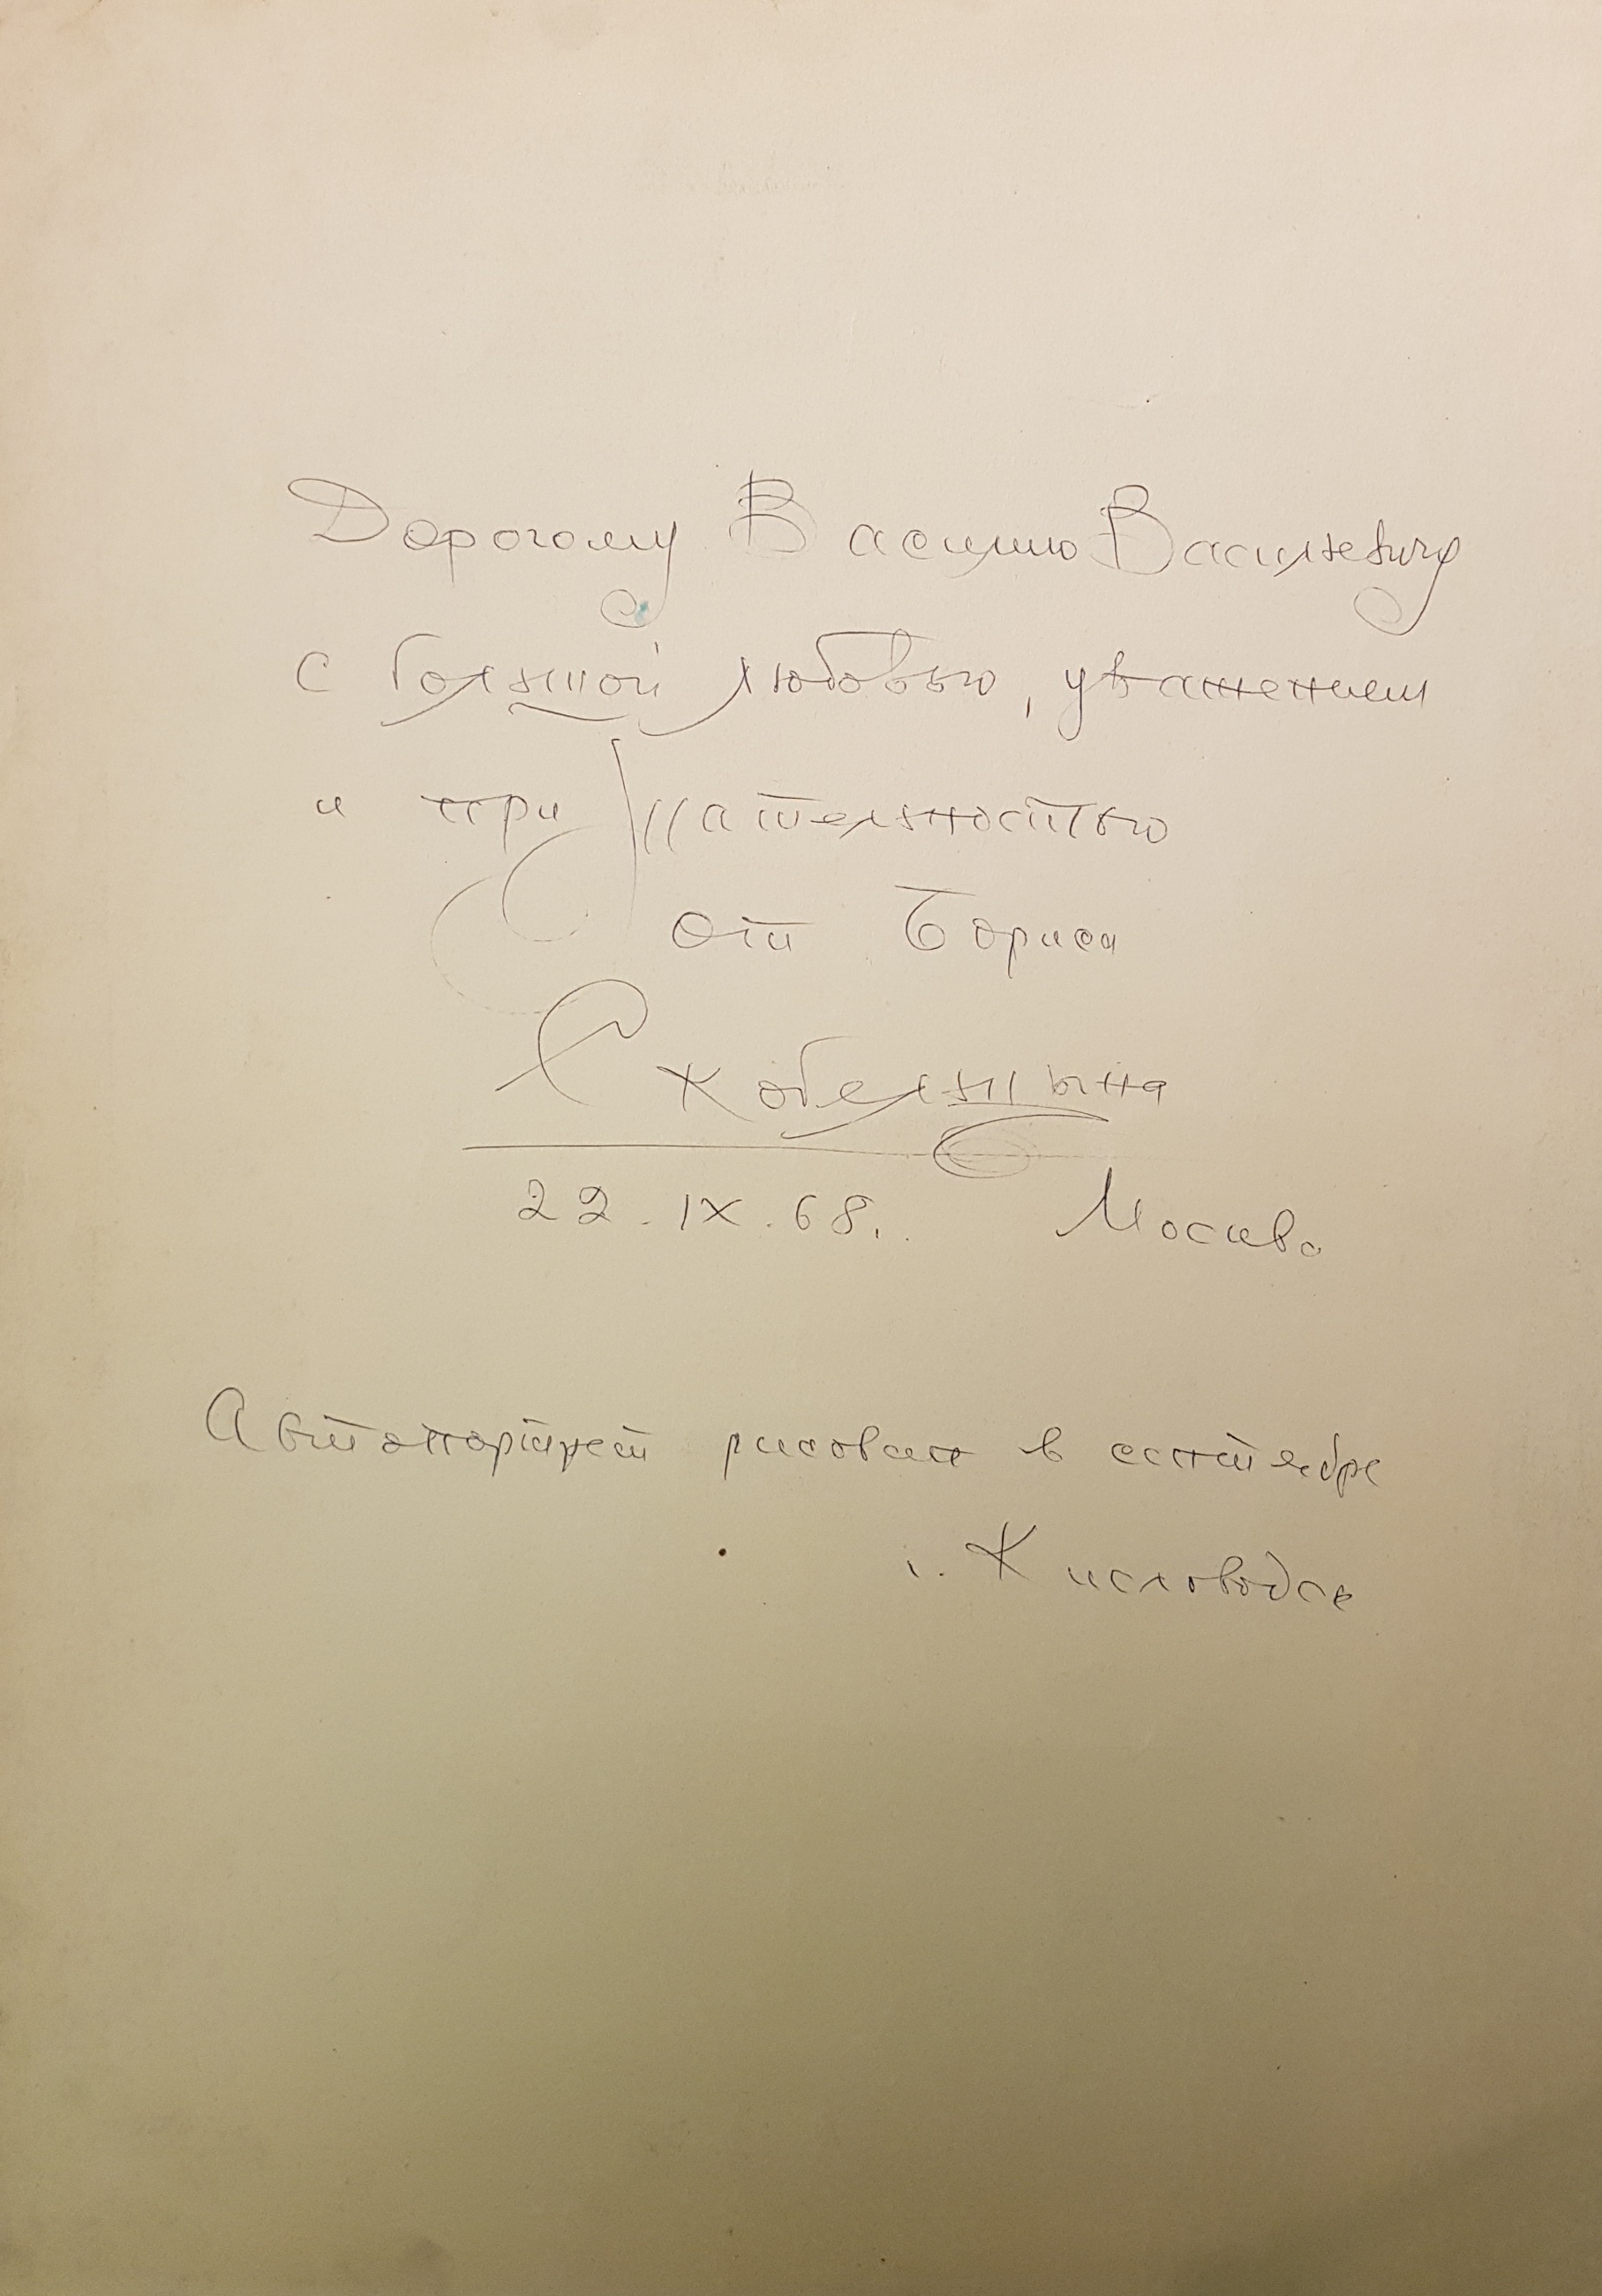 Дорогому Василию Васильевичу
с большой любовью, уважением
и признательностью
от Бориса
Скобельцына
22.IX.68. Москва
Автопортрет рисован в сентябре
г. Кисловодск